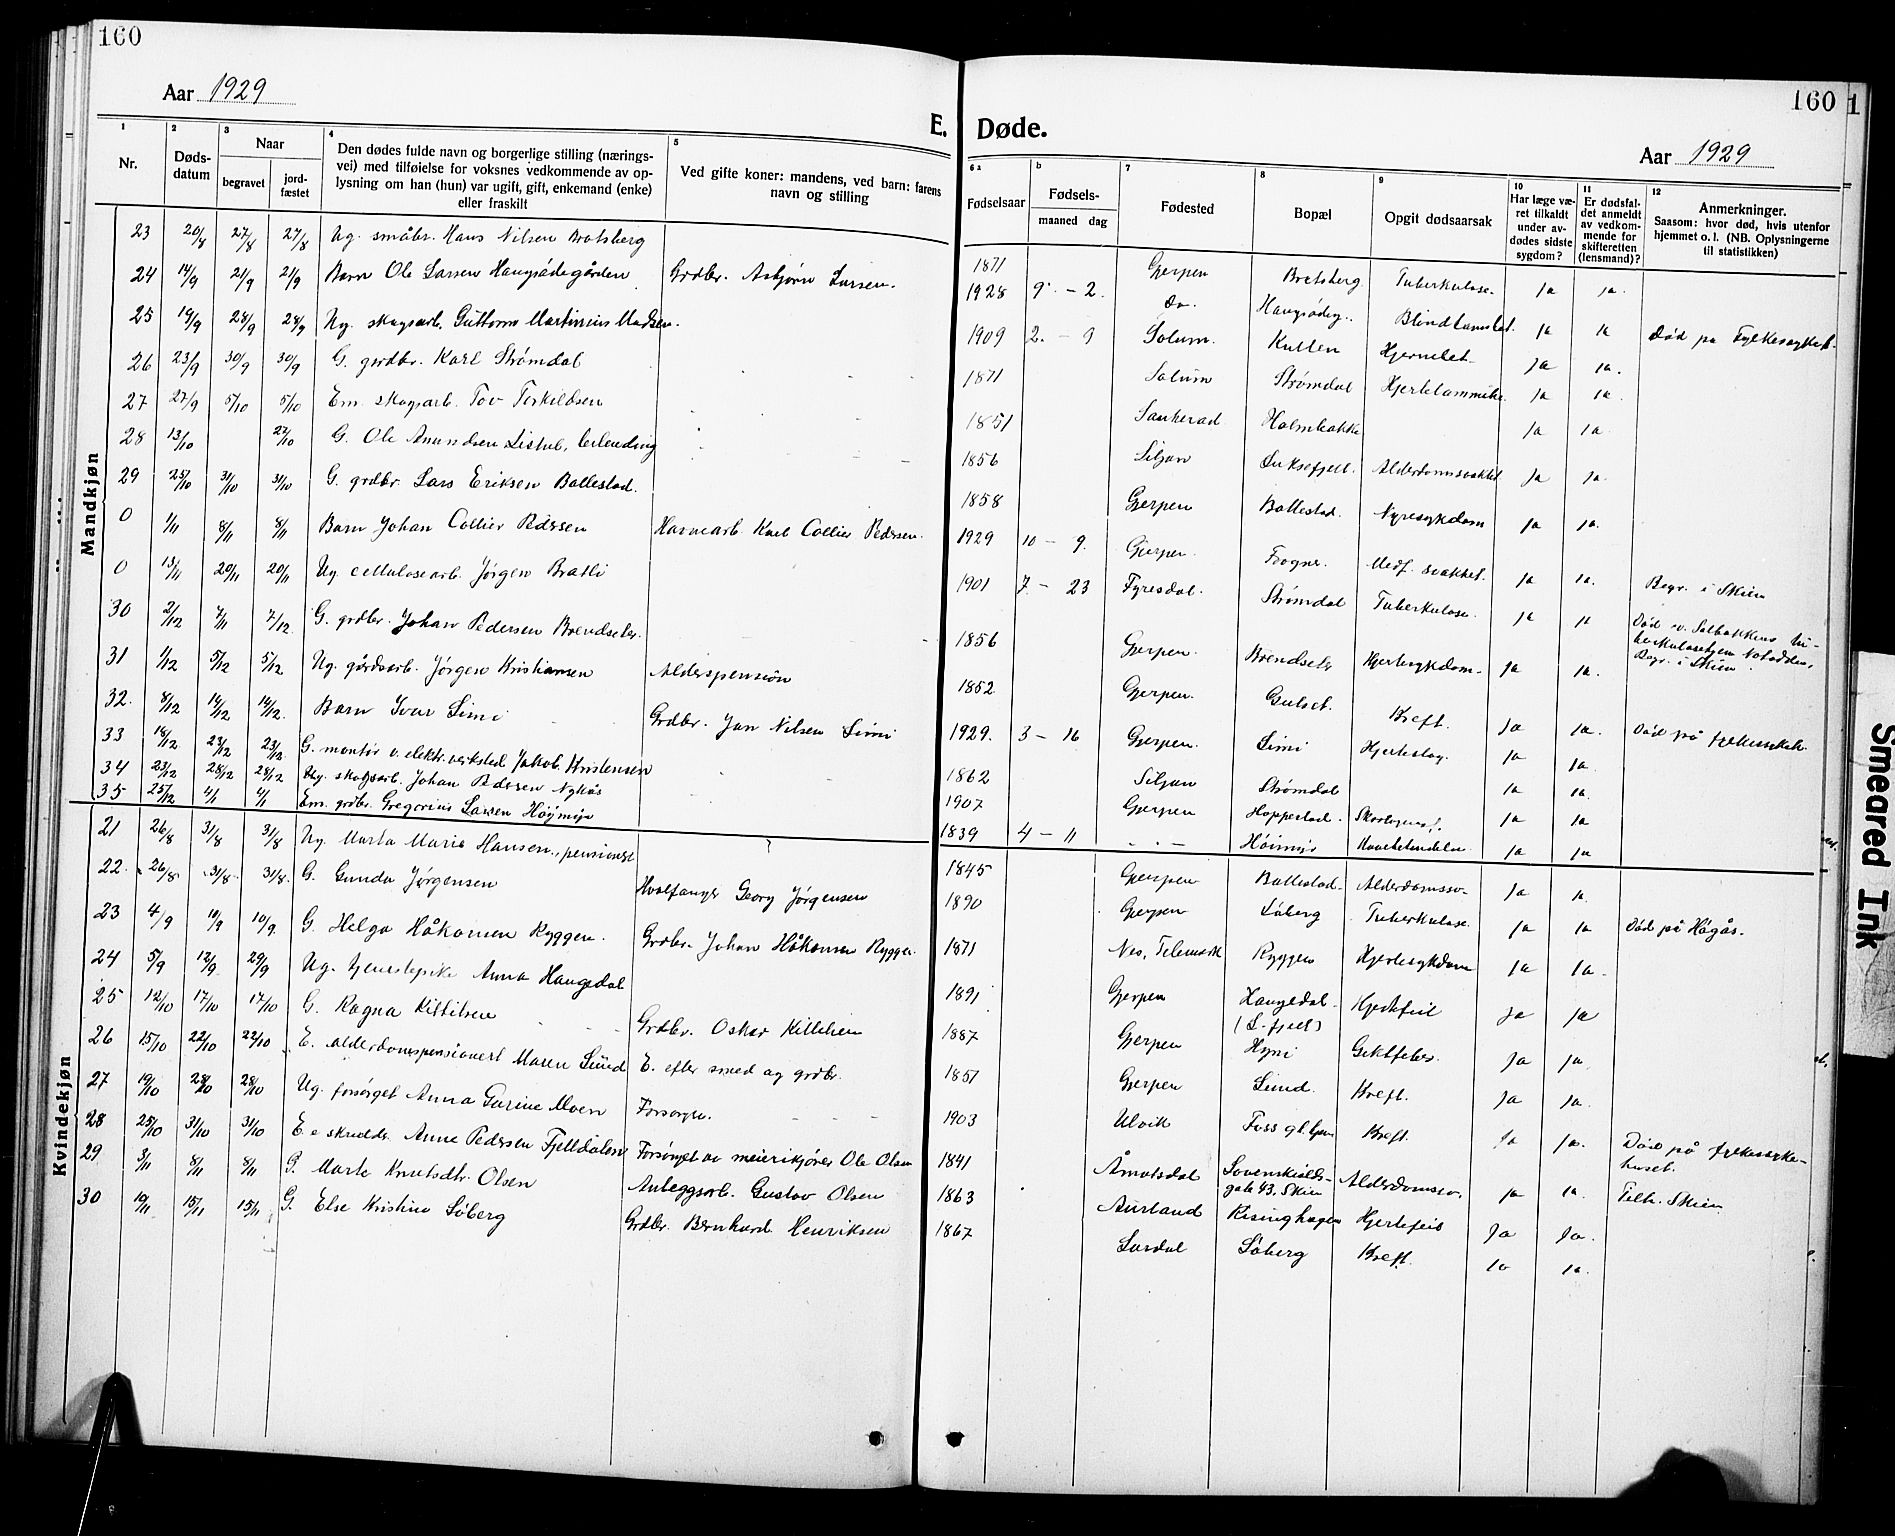 160
Aar 1929
E.
1 Nr.
2 Døds-datum
3 Naar
begravet
jord-fæstet
4 Den dødes fulde navn og borgerlige stilling (nærings-
vei) med tilføielse for voksnes vedkommende av op-
lysning om han (hun) var ugift, gift, enkemand (enke)
eller fraskilt
5 Ved gifte koner: mandens, ved barn: farens
navn og stilling
Mandkjøn
23 20/8 27/8 27/8 Ug. småbr. Hans Nilsen Bratsberg
24 14/9 21/9 21/9 Barn Ole Larsen Haugsådegården Grdbr. Asbjørn Larsen.
25 19/9 28/9 28/9 Ug. skogsarb. Guttorm Martinius Madsen.
26 23/9 30/9 30/9 G. grdbr. Karl Strømdal
27 27/9 5/10 5/10 Em. skogsarb. Tov Torkildsen
28 13/10 27/10 G. Ole Amundsen Listul,
29 25/10 31/10 31/10 G. grdbr. Lars Eriksen Ballestad.
0 1/11 8/11 8/11 Barn Johan Collier Pedersen Havnearb. Karl Collier Pedersen.
0 13/11 20/11 20/11 Ug. cellulosearb. Jørgen Bratli
30 2/12 7/11 7/12. G. grdbr. Johan Pedersen Brendseter.
31 1/12 5/12 5/12 Ug. gårdsarb. Jørgen Kristiansen Alderspension
32. 8/12 14/12 14/12. Barn Ivar Limi Grdbr. Jan Nilsen Limi
33 18/12 23/12 23/12 G. montør v. elektr. verksted Jakob Kristensen
34 23/12 28/12 28/12 Ug. skogsarb. Johan Pedersen Nykås
35 25/12 4/1 4/1 Em. grdbr. Gregorius Larsen Höymyr
Kvindekjøn
21 26/8 31/8 31/8 Ug. Marta Marie Hansen, pensionist
22. 26/8 31/8 31/8. G. Gunda Jørgensen Hvalfanger Georg Jørgensen
23 4/9 10/9 10/9. G. Helga Håkonsen Ryggen. Grdbr. Johan Håkonsen Ryggen.
24 5/9 12/9 29/9 Ug. tjenestepike Anna Haugedal
25 12/10 17/10 17/10 G. Ragna Kittilsen Grdbr. Oskar Kittilsen
26 15/10 22/10 22/10 E. alderdomspensionert Maren Lund E. efter smed og grdbr.
27 19/10 28/10 28/10 Ug. forsørget Anna Gurine Moen Forsørges.
28 25/10 31/10 31/10 E. e skrædd. Anne Pedersen Fjelldalen Forsørget av meierikjører Ole Olsen
29 3/11 8/11 8/11 G. Marte Knutsdtr. Olsen Anleggsarb. Gustav Olsen
30 19/11 15/11 15/11 G. Else Kristine Löberg Grdbr. Bernhard Henriksen
160
Døde.
Aar 1929
6 a Fødselsaar
b Fødsels-
maaned dag
7 Fødested
8 Bopæl
9 Opgit dødsaarsak
10 Har læge væ-
ret tilkaldt
under av-
dødes sidste
sygdom?
11 Er dødsfal-
det anmeldt
av vedkom-
mende for
skifteretten
(lensmand)?
12 Anmerkninger.
Saasom: hvor død, hvis utenfor
hjemmet o. l. (NB. Oplysningerne
til statistikken)
1871 Gjerpen Bratsberg Tuberkulose. ja ja.
1928 9. - 2. do. Haugsådeg. Blindtarmbet. ja ja Død på Fylkessykeh.
1909 2. - 9 Solum. Kullen Hjernebet. ja ja.
1871 Solum Strømdal Hjertelammelse. ja ja.
1851 Sauherad Holmbakke ja ja.
1856 Siljan Luksefjell. Alderdomssvakhet ja ja.
1858 Gjerpen Ballestad. Nyresykdom ja ja.
1929 10 - 9. Gjerpen. Frogner. Medf. svakhet. ja ja. Begr. i Skien
1901 7. - 23 Fyresdal. Strømdal Tuberkulose. ja ja Død v. Solbakkens tu-
berkulosehjem Notodden,
Begr. i Skien
1856 Gjerpen. Brendseter Hjertesykdom. ja ja.
1852 Gjerpen. Gulset. Kreft. ja ja. Død på fylkessykeh.
1929. 3 - 16 Gjerpen. Limi Hjerteslag. ja ja.
1862 Siljan Strømdal ja ja.
1907 Gjerpen Hoppestad. ja ja
1839 4 - 11 - . - Höimyr ja ja
1845 Gjerpen Ballestad. Alderdomssv. ja ja.
1890 Gjerpen Löberg Tuberkulose. ja ja Død på Högås.
1871 Nes, Telemark Ryggen Hjertesykdom ja ja.
1891 Gjerpen Haugedal
(L. fjell) Hjertefeil ja ja
1887 Gjerpen Hyni Giktfeber. ja ja.
1851 Gjerpen Lund. Kreft. ja ja.
1903 Ulvik Foss gl. hjem Kreft. ja ja. Død på fylkessyke-
huset.
1841 Åmotsdal Løvenskiolds-
gate 43, Skien Alderdomssv. ja ja. Tilh. Skien
1863 Aurland Risinghagen Hjertefeil ja ja.
1867 Lardal Löberg Kreft. ja ja.
1
Smeared Ink